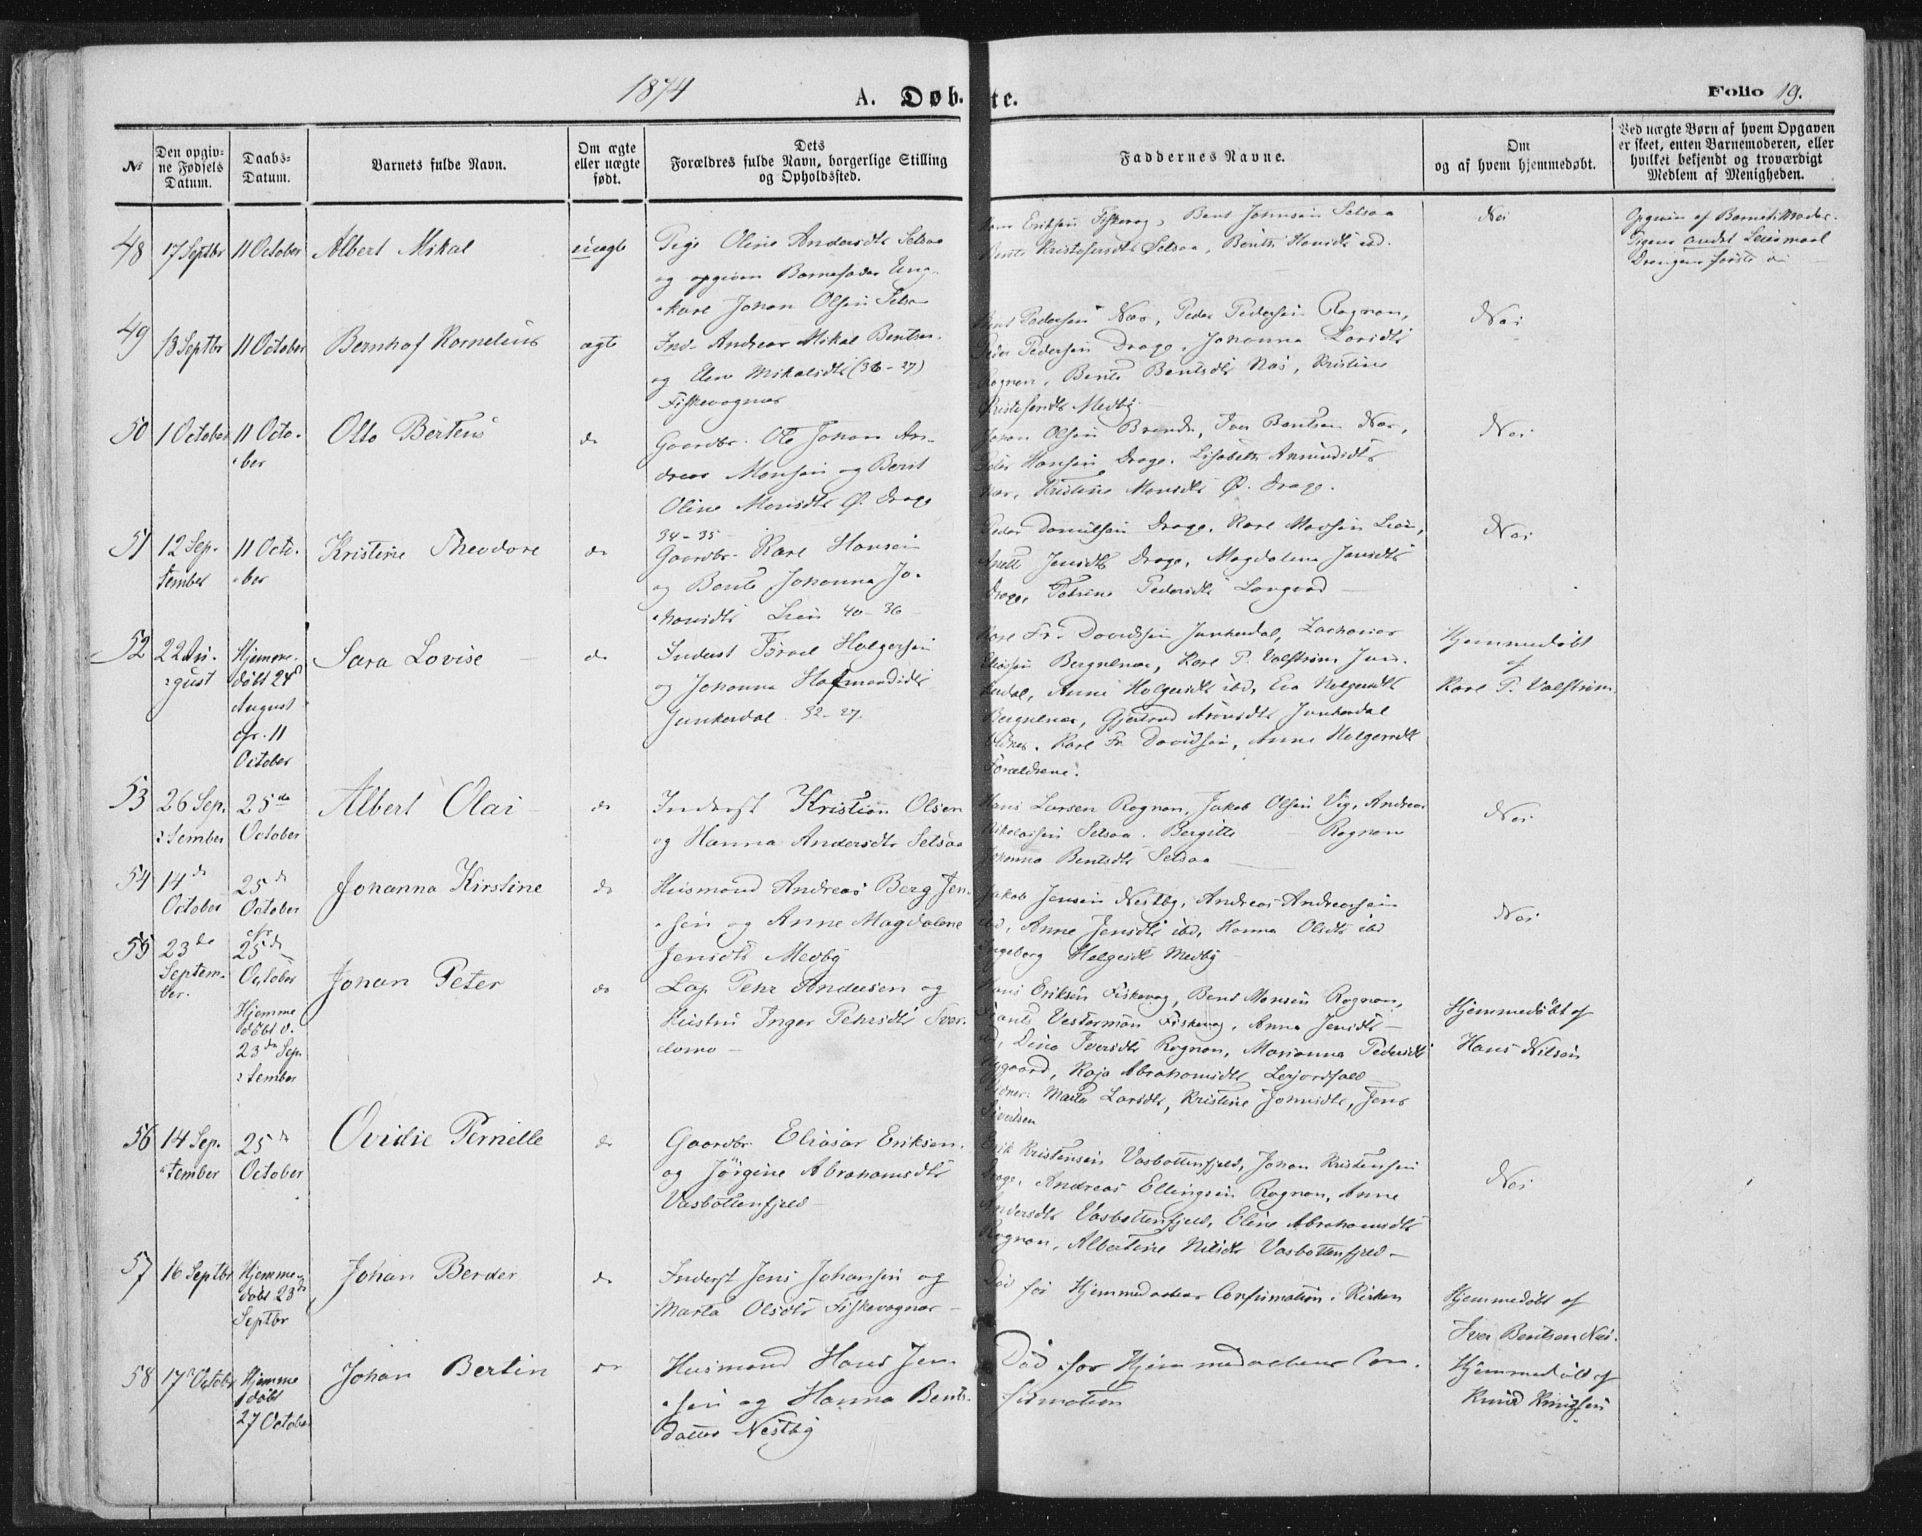 1874
A. Døb- te.
Folio 19.
№
Den opgiv-
ne Fødsels
Datum.
Daabs-
Datum.
Barnets fulde Navn.
Om ægte
eller uægte
født.
Dets
Forældres fulde Navn, borgerlige Stilling
og Opholdssted.
Faddernes Navne.
Om
og af hvem hjemmedøbt.
Ved uægte Børn af hvem Opgaven
er skeet, enten Barnemoderen, eller
hvilket bekjendt og troværdigt
Medlem af Menigheden.
48
17 Septbr
11 October
Albert Mikal
uægte
Pige Oline Andersdtr Selsaa
og opgiven Barnefader Ung-
karl Johan Olsen Selsa
Eriksen Fiskevog, Bent Johnsen Selsaa
Bente Kristofersdtr Selsaa,
Nei
Opgiven af Barnets Moder.
Pigens andet Leiermaal
Drengens første
49
13 Septbr
11 October
Bernhof Kornelius
ægte
Ind. Andreas Mikal Bentsen
og Elen Mikalsdtr (36-27)
Fiskevognes
Pedersen Næs, Peder Pedersen Rognan,
Peder Pedersen Drage, Johanna Larsdtr
Rognan, Bente Bentsdtr Næs, Kristine
Kristofersdtr Medby
Nei
50
1 October
11 Octo-
ber
Otto Berteus
do
Gaardbr. Ole Johan An-
dreas Monsen og Berit
Oline Monsdtr Ø. Drage
34-35
Johan Olsen Brænde, Iver Bentsen Næs,
Peder Hansen Drage, Lisabeth Amundsdtr
Næs, Kristine Monsdtr Ø. Drage.
Nei
51
12 Sep-
tember
11 Octo-
ber
Kristine Theodore
do
Gaardbr. Karl Hansen
og Bente Johanna Jo-
hansdtr Lien 40-36
Peder Danielsen Drage, Karl Larsen Lien,
Anette Jensdtr Drage, Magdalena Jensdtr
Drage, Petrine Pedersdtr Langvad
Nei
52
22 Au-
gust
Hjemme-
døbt 24
August
Cfr. 11
October
Sara Lovise
do
Inderst Israel Holgersen
og Johanna Hartmandsdtr
Junkerdal 32-27.
Karl Fr. Davidsen Junkerdal, Zacharias
Eliasen Bergulnes, Karl P. Valstrøm Jun-
kerdal, Anne Holgersdtr ibd, Eva Holgersdtr
Bergulnes, Gjertrud Aronsdtr Junkerdal
Vidner. Karl Fr. Davidsen, Anne Holgersdtr
Forældrene.
Hjemmedøbt
af
Karl P. Valstrøm.
53
26 Sep-
tember
25de
October
Albert Olai
do
Inderst Kristian Olsen
og Hanna Andersdtr Selsaa
Hans Larsen Rognan, Jakob Olsen Vig, Andreas
Nikolaisen Selsaa, Bergitte — Rognan
Johanna Bentsdtr Selsaa
Nei
54
14de
October
25de
October
Johanna Kirstine
do
Husmand Andreas Berg Jen-
sen og Anne Magdalene
Jensdtr Medby
Jakob Jensen Nestby, Andreas Andreassen
ibd, Anne Jensdtr ibd, Hanna Olsdtr ibd
Ingeborg Holgersdtr Medby
Nei
55
23de
Septem-
ber.
Cfr.
25de
October
Hjemme
døbt d.
23de Sep-
tember
Johan Peter
do
Lap Pehr Andersen og
Hustru Inger Pehrsdtr Sver-
domo
Hans Eriksen Fiskevog, Bent Monsen Rognan,
Frants Vesterman Fiskevog, Anna Jensdtr
ibd, Lina Iversdtr Rognan, Marianna Pedersdtr
Nygaard, Kaja Abrahamsdtr Lerjordfald
Vidner: Marta Larsdtr, Kristine Johnsdtr, Jens
Sivertsen
Hjemmedøbt af
Hans Nilsen
56
14 Sep-
tember
25de
October
Ovidie Pernelle
do
Gaardbr. Eliasar Eriksen
og Jørgine Abrahamsdtr
Vasbottenfjeld
Erik Kristensen Vasbottenfjeld, Johan Kristensen
Drage, Andreas Ellingsen Rognan, Anne
Andersdtr Vasbottenfjeld, Eline Abrahamsdtr
Rognan, Albertine Nilsdtr Vasbottenfjeld
Nei
57
16 Septbr
Hjemme-
døbt 23de
Septbr
Johan Berder
do
Inderst Jens Johansen og
Marta Olsdtr Fiskevognes
Død før Hjemmedaabens Confirmation i Kirken
Hjemmedøbt af
Iver Bentsen Næs.
58
17 October
Hjemme
døbt
27 October
Johan Bertin
do
Husmand Hans Jen-
sen og Hanna Bents-
datter Nestby
Død før Hjemmedaabens Con-
firmation
Hjemmedøbt af
Knud Knudsen